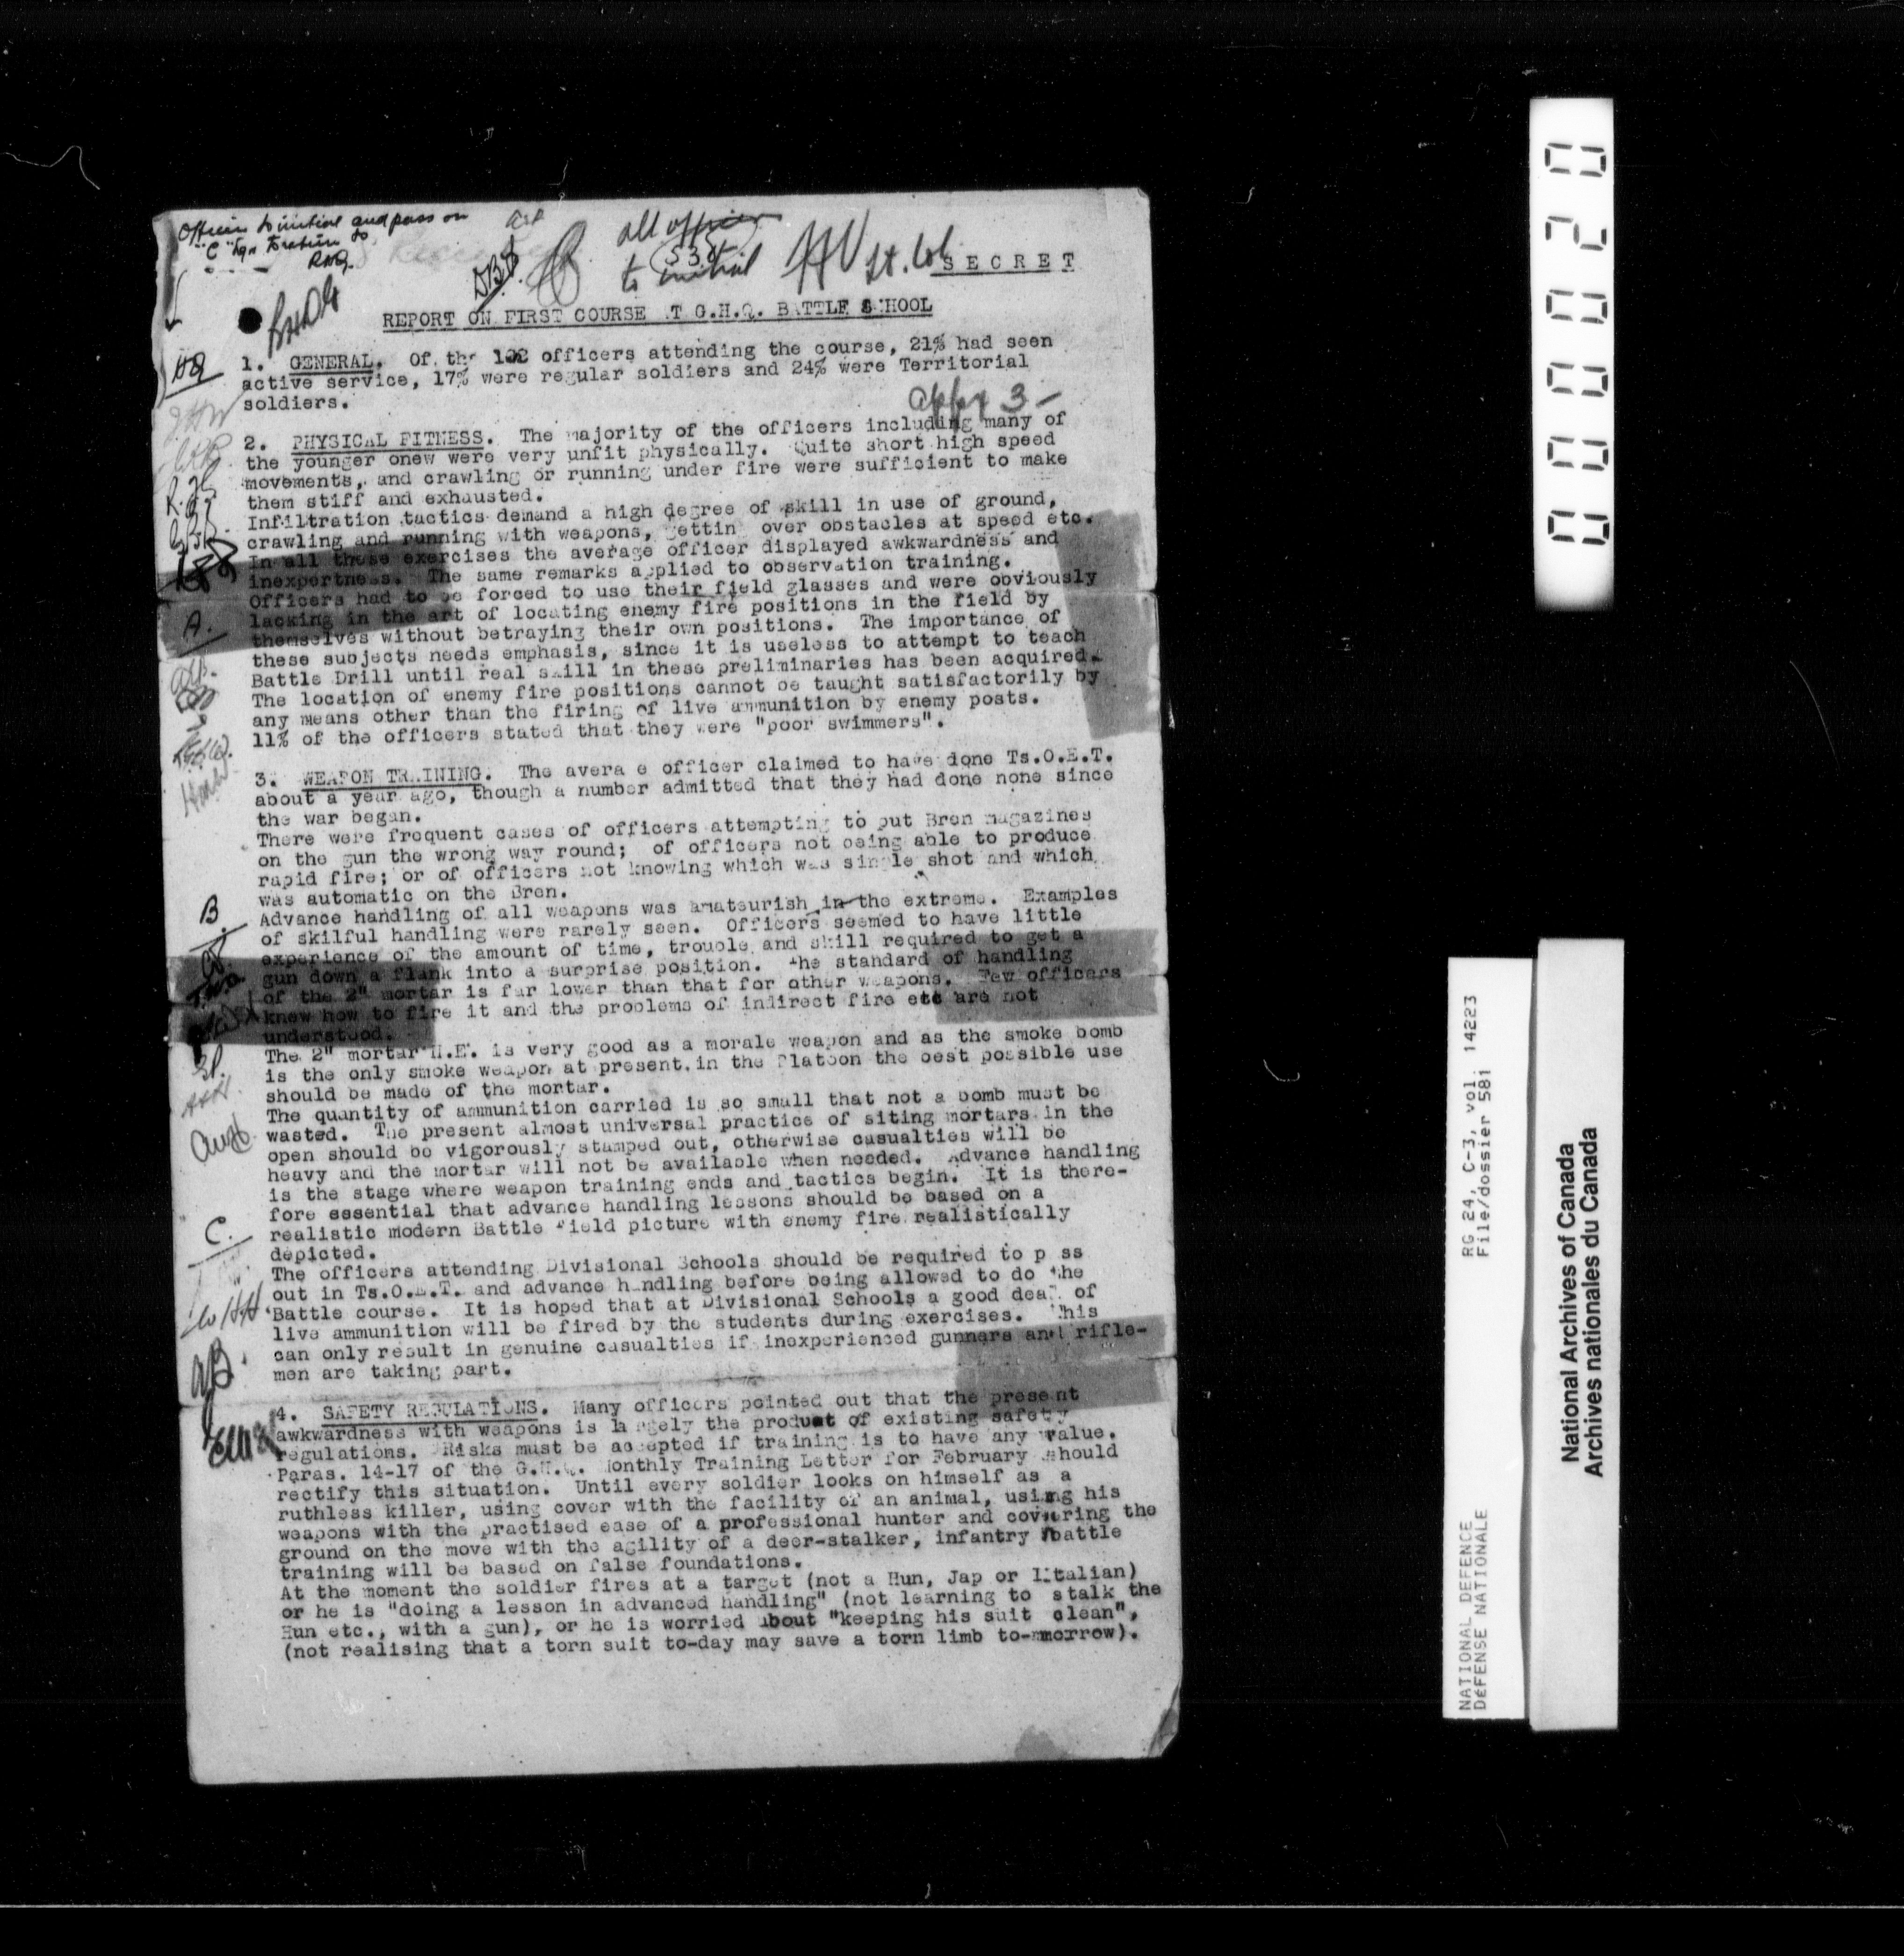 Officers to initial and pass on
all officers
to initial
Lt. Col
SECRET
REPORT ON FIRST COURSE AT G.H.Q. BATTLE SCHOOL
1. GENERAL. Of the officers attending the course, 21% had seen
active service, 17% were regular soldiers and 24% were Territorial
soldiers.
Appx 3 -
2. PHYSICAL FITNESS. The majority of the officers including many of
the younger onew were very unfit physically. Quite short high speed
movements, and crawling or running under fire were sufficient to make
them stiff and exhausted.
Infiltration tactics demand a high degree of skill in use of ground,
crawling and running with weapons, getting over obstacles at speed etc.
In all these exercises the average officer displayed awkwardness and
inexpertness. The same remarks applied to observation training.
Officers had to be forced to use their field glasses and were obviously
lacking in the art of locating enemy fire positions in the field by
A.
themselves without betraying their own positions. The importance of
these subjects needs emphasis, since it is useless to attempt to teach
Battle Drill until real skill in these preliminaries has been acquired.
The location of enemy fire positions cannot be taught satisfactorily by
any means other than the firing of live ammunition by enemy posts.
11% of the officers stated that they were "poor swimmers".
3. WEAPON TRAINING. The average officer claimed to have done Ts.O.E.T.
about a year ago, though a number admitted that they had done none since
the war began.
There were frequent cases of officers attempting to put Bren magazines
on the gun the wrong way round; of officers not being able to produce
rapid fire; or of officers not knowing which was single shot and which
was automatic on the Bren.
B.
Advance handling of all weapons was amateurish in the extreme. Examples
of skilful handling were rarely seen. Officers seemed to have little
experience of the amount of time, trouble and skill required to get a
gun down a flank into a surprise position. The standard of handling
of the 2" mortar is far lower than that for other weapons. Few officers
knew how to fire it and the problems of indirect fire etc are not
understood.
The 2" mortar H.E. is very good as a morale weapon and as the smoke bomb
is the only smoke weapon at present in the Platoon the best possible use
should be made of the mortar.
The quantity of ammunition carried is so small that not a bomb must be
wasted. The present almost universal practice of siting mortars in the
open should be vigorously stamped out, otherwise casualties will be
heavy and the mortar will not be available when needed. Advance handling
is the stage where weapon training ends and tactics begin. It is there-
fore essential that advance handling lessons should be based on a
C.
realistic modern Battle Field picture with enemy fire realistically
depicted.
The officers attending Divisional Schools should be required to pass
out in Ts.O.E.T. and advance handling before being allowed to do the
Battle course. It is hoped that at Divisional Schools a good deal of
live ammunition will be fired by the students during exercises. This
can only result in genuine casualties if inexperienced gunners and rifle-
men are taking part.
4. SAFETY REGULATIONS. Many officers pointed out that the present
awkwardness with weapons is largely the product of existing safety
regulations. Risks must be accepted if training is to have any value.
Paras. 14-17 of the G.H.Q. Monthly Training Letter for February should
rectify this situation. Until every soldier looks on himself as a
ruthless killer, using cover with the facility of an animal, using his
weapons with the practised ease of a professional hunter and covering the
ground on the move with the agility of a deer-stalker, infantry battle
training will be based on false foundations.
At the moment the soldier fires at a target (not a Hun, Jap or Iitalian)
or he is "doing a lesson in advanced handling" (not learning to stalk the
Hun etc., with a gun), or he is worried about "keeping his suit clean",
(not realising that a torn suit to-day may save a torn limb to-mmorrow).
000020
RG 24, C-3, vol. 14223
File/dossier 581
NATIONAL DEFENCE
DÉFENSE NATIONALE
National Archives of Canada
Archives nationales du Canada